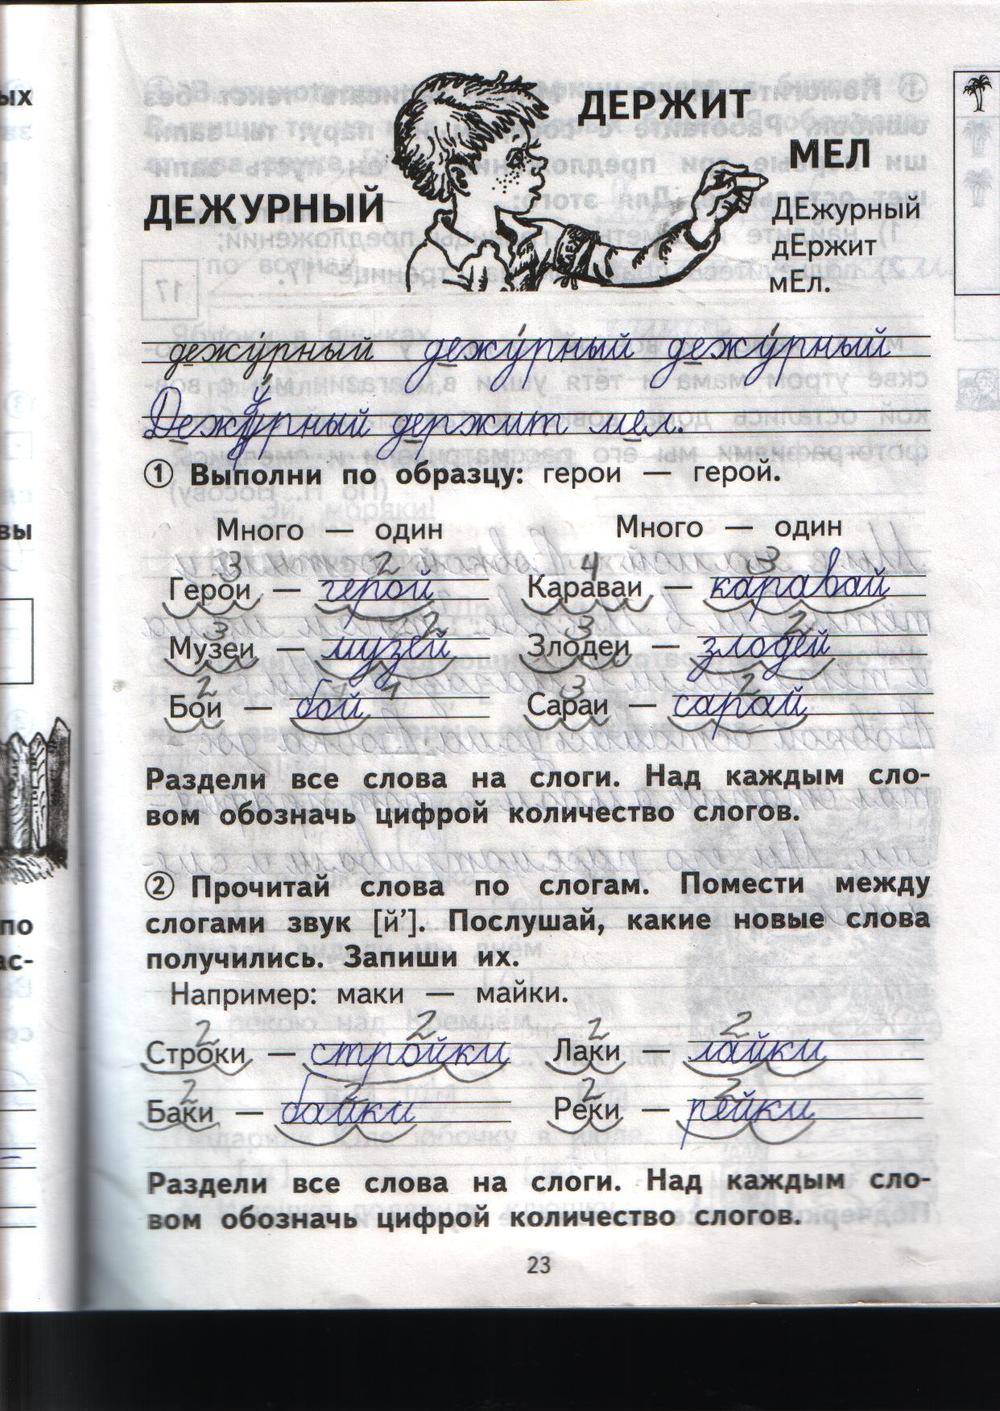 ДЕРЖИТ
МЕЛ
ДЕЖУРНЫЙ
ДЕжурный
дЕржит
мЕл.
дежу́рный дежу́рный дежу́рный
Дежурный держит мел.
① Выполни по образцу: герои — герой.
Много — один Много — один
3 2 4 3
Герои — герой Караваи — каравай
3 2 3 2
Музеи — музей Злодеи — злодей
2 1 3 2
Бои — бой Сараи — сарай
Раздели все слова на слоги. Над каждым сло-
вом обозначь цифрой количество слогов.
② Прочитай слова по слогам. Помести между
слогами звук [й’]. Послушай, какие новые слова
получились. Запиши их.
Например: маки — майки.
2 2 2 2
Строки — стройки Лаки — лайки
2 2 2 2
Баки — байки Реки — рейки
Раздели все слова на слоги. Над каждым сло-
вом обозначь цифрой количество слогов.
23